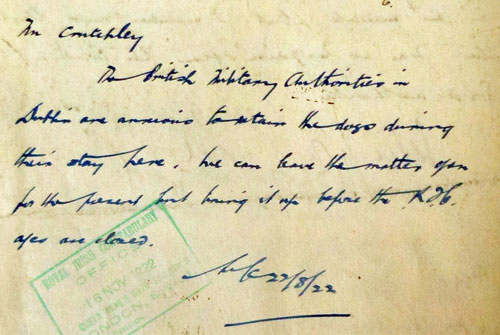 Mr Crutchley
The British Military Authorities in
Dublin are anxious to retain the dogs during
their stay here. We can leave the matter open
for the present but bring it up before the R.I.C.
a/cs are closed.
22/8/22
ROYAL IRISH CONSTABULARY
OFFICE
18 NOV 1922
LONDON